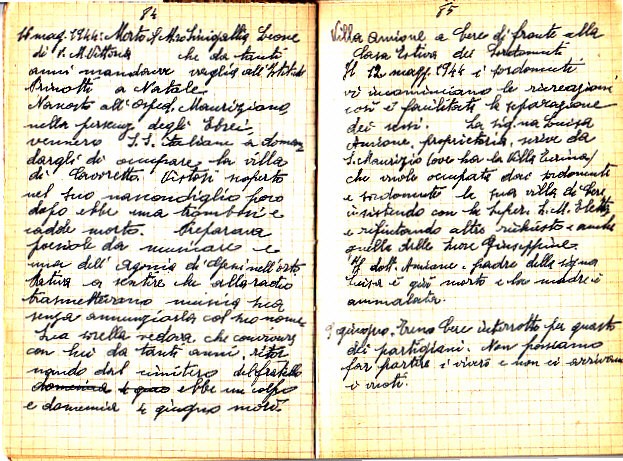 84
16 mag. 1944: Morto S. M.ro Sinigallia Leone
di S. M. Vittoria che da tanti
anni mandava vaglia all'Istituto
Prinotti a Natale.
Nascosto all'Osped. Mauriziano,
nella persecuz. degli Ebrei,
vennero S.S. italiane a doman
dargli di occupare la villa
di Cavoretto. Vistosi scoperto
nel suo nascondiglio poco
dopo ebbe una trombosi e
cadde morto. Preparava
poesiole da musicare e
una dell'Agonia di Gesù nell'orto.
Pativa a sentire che alla radio
trasmettevano musica sua
senza annunziarla col suo nome
Sua sorella vedova che conviveva
con lui da tanti anni, ritor
nando dal cimitero del fratello
domenica ebbe un colpo
e domenica 4 giugno morì.
85
Villa Amione a Cere di fronte alla
Casa Estiva dei Sordomuti
Il 12 magg. 1944 i sordomuti
vi incominciano le ricreazioni
così è facilitata la separazione
dei sessi. La sig.na Luisa
Amione, proprietaria, scrive da
S. Maurizio (ove ha la Villa
che vuole occupata dai sordomuti
e sordomute la sua villa di Cere
insistendo con la Super. S. M.
e rifiutando altre richieste e anche
quella delle Suore Giuseppine.
Il dott. Amione, padre della sig.na
Luisa è già morto e la madre è
ammalata.
9 giugno. Treno Cere interrotto per guasto
dei partigiani. Non possiamo
far partire i viveri e non ci arrivano
i vuoti.